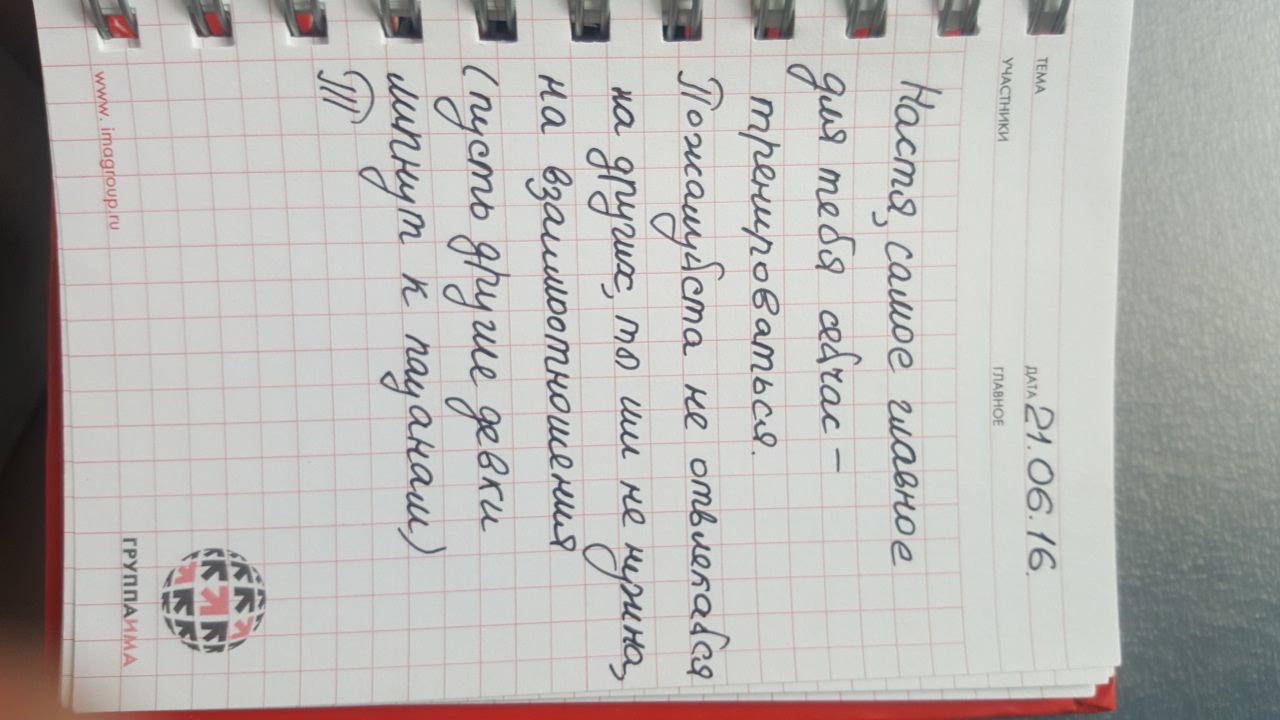 ТЕМА
ДАТА 21.06.16.
УЧАСТНИКИ
ГЛАВНОЕ
Настя, самое главное
для тебя сейчас –
тренироваться.
Пожалуйста не отвлекайся
на других, ты им не нужна,
на взаимоотношения
(пусть другие девки
липнут к пацанам)
www.imagroup.ru
ГРУППАИМА